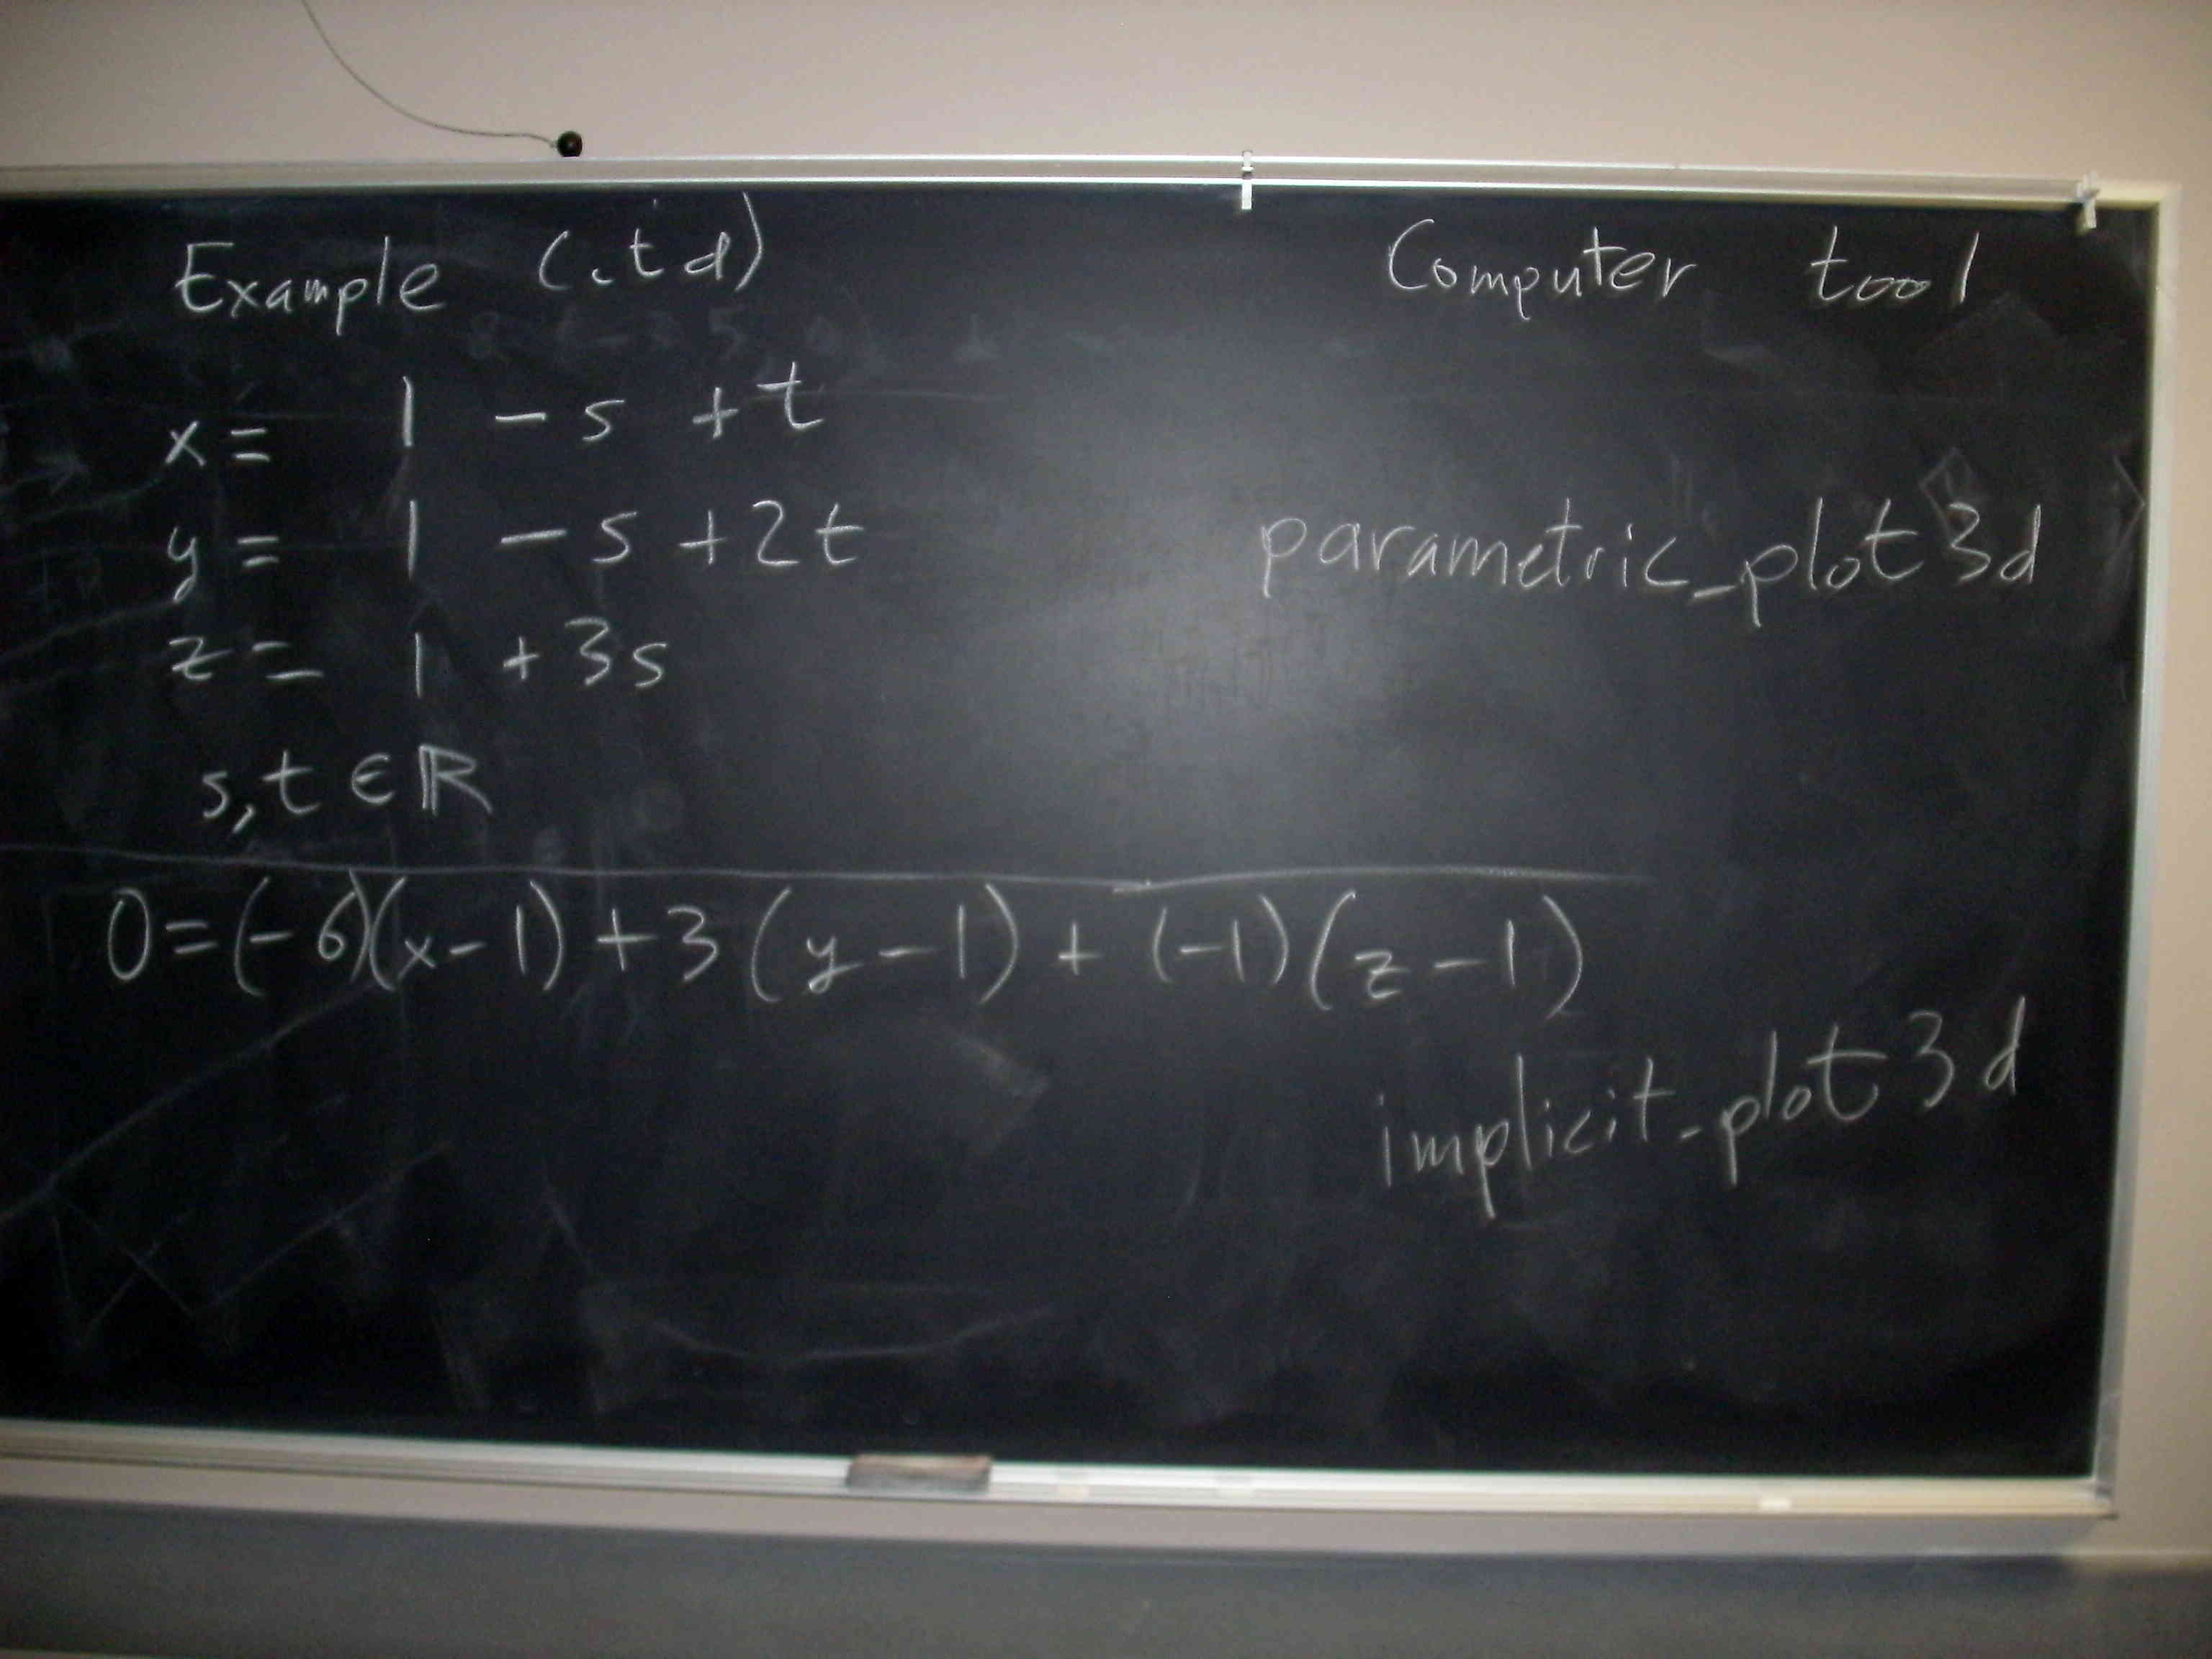 Example (.td)
Computer tool
x = 1 - s + t
y = 1 - s + 2t
parametric_plot3d
z = 1 + 3s
s,t ∈ ℝ
0 = (-6)(x-1) + 3(y-1) + (-1)(z-1)
implicit_plot3d